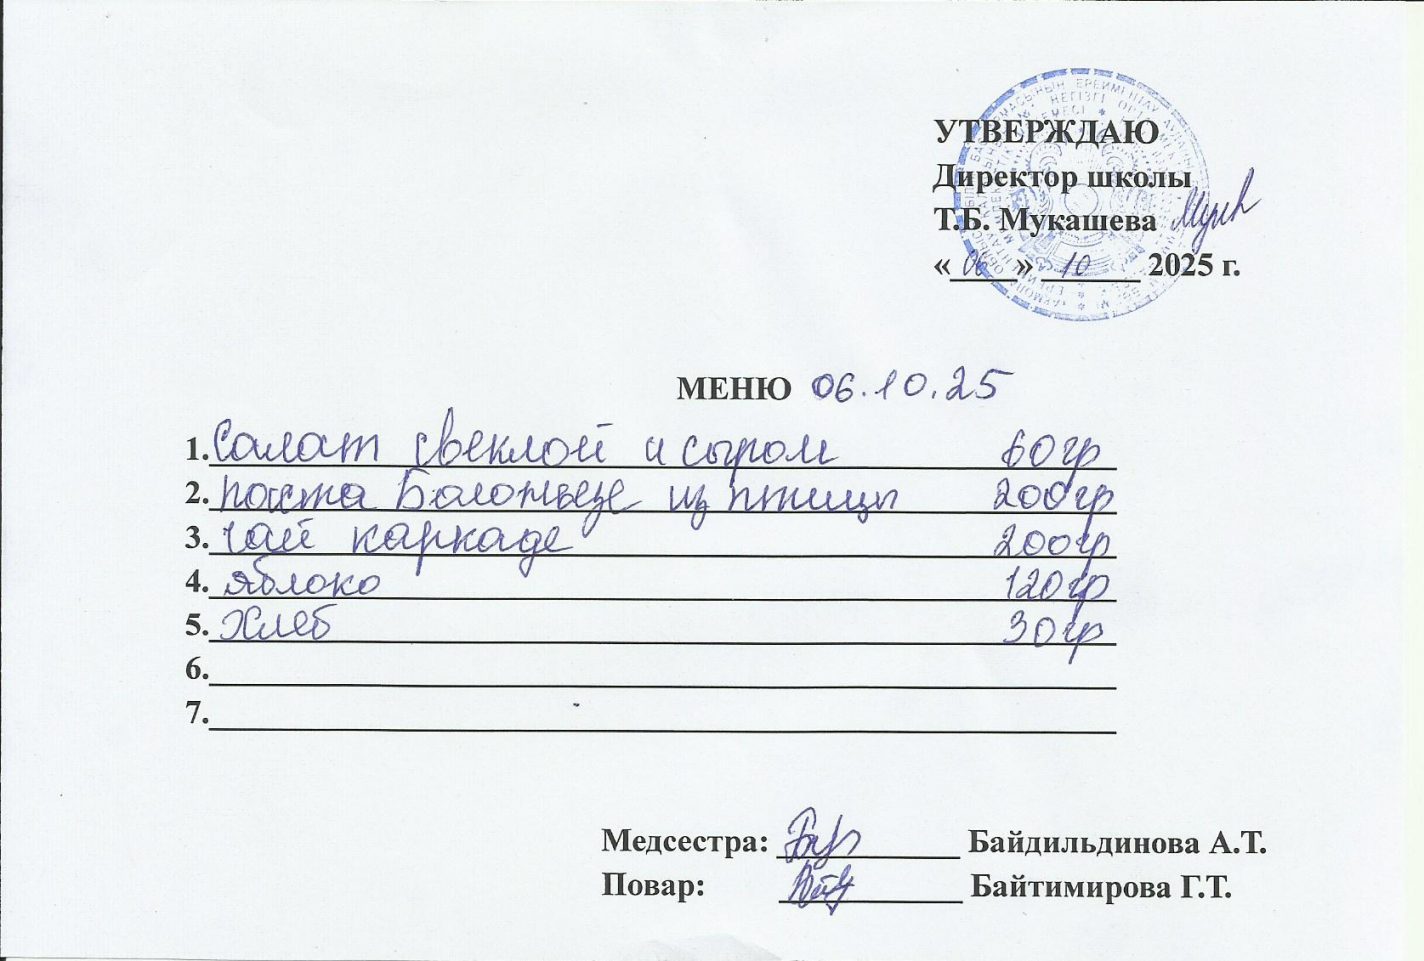 УТВЕРЖДАЮ
Директор школы
Т.Б. Мукашева
«06» 10 2025 г.
МЕНЮ 06.10.25
1. Салат свеклой и сыром 60гр
2. паста Болоньезе из птицы 200гр
3. чай каркаде 200гр
4. яблоко 120гр
5. Хлеб 30гр
6.
7.
Медсестра: Байдильдинова А.Т.
Повар: Байтимирова Г.Т.